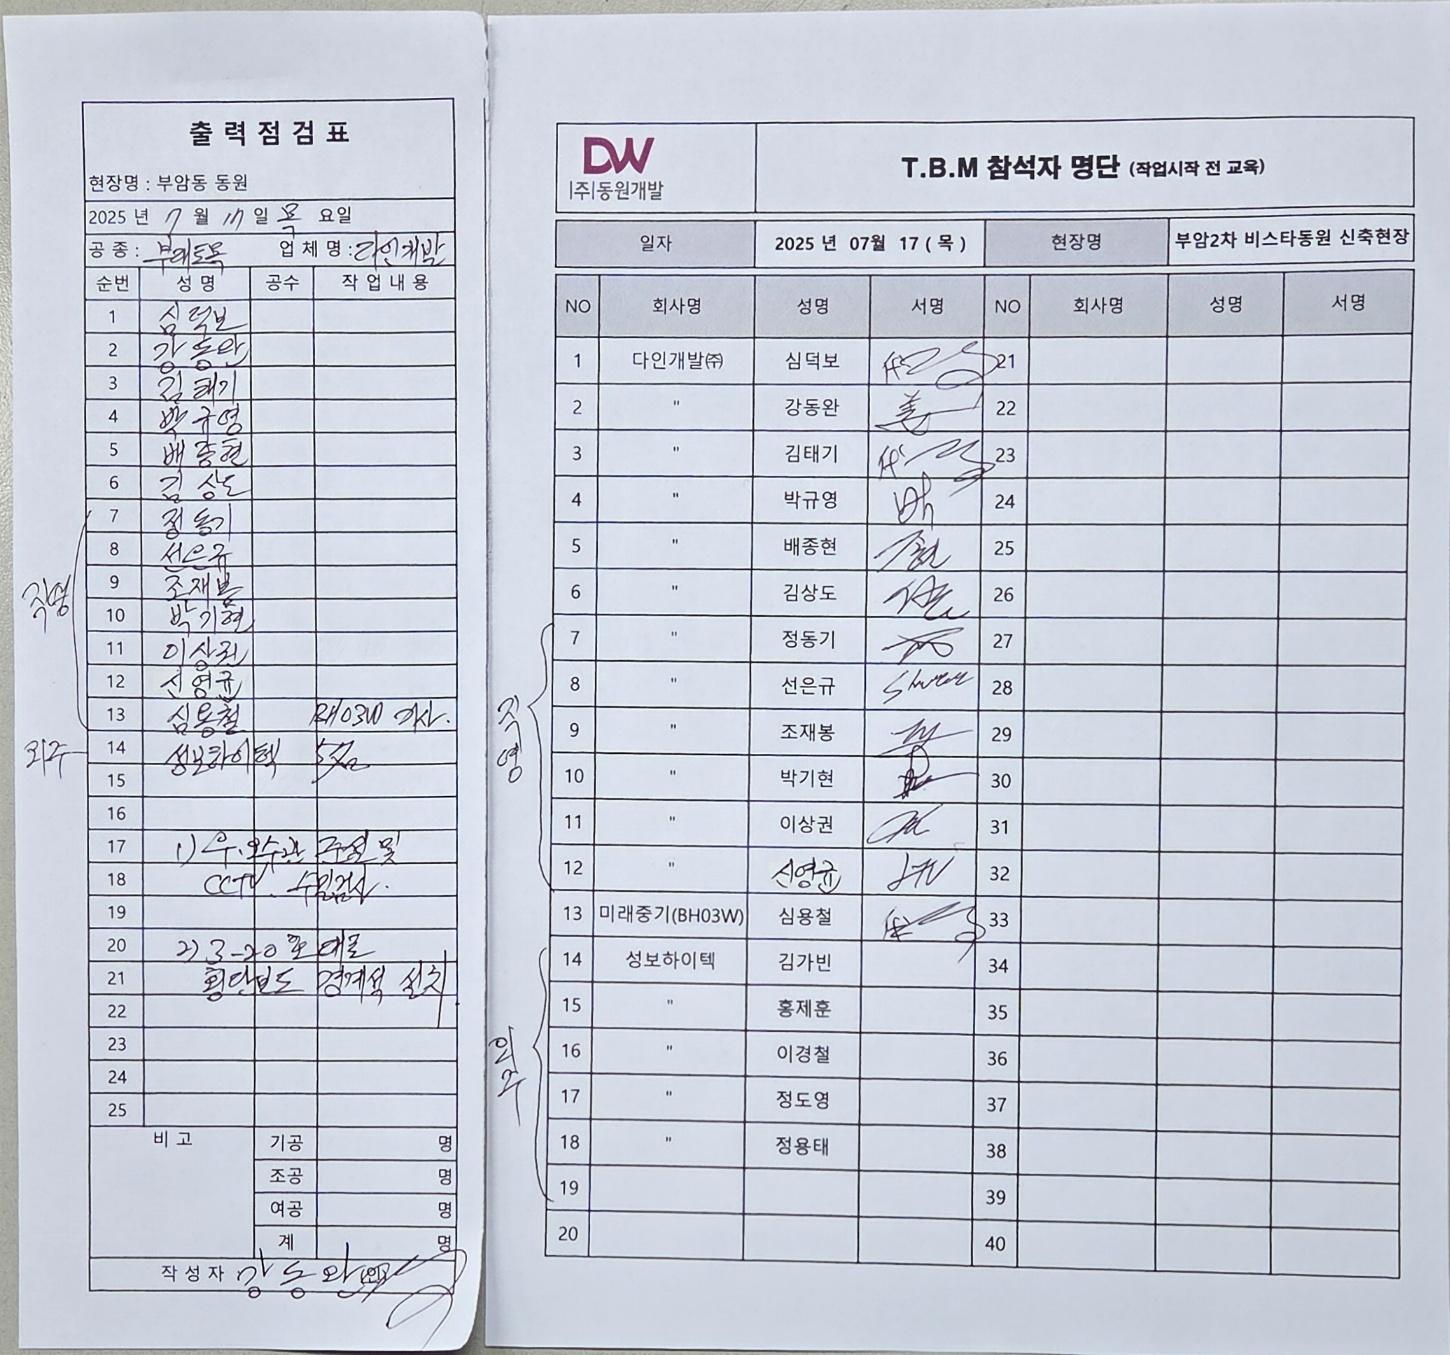 출력점검표
현장명 : 부암동 동원
2025 년 7 월 17 일 목 요일
공 종 : 부대토목 업 체 명 : 다인개발
순번 성 명 공수 작 업 내 용
1 심덕보
2 강동완
3 김태기
4 박규영
5 배종현
6 김상도
7 정동기
8 선은규
9 조재봉
10 박기현
11 이상권
12 신영균
13 심용철 BH03W 기사.
14 성보하이텍 5名
15
16
17 1) 우.오수관 준설 및
18 CCTV. 수밀검사.
19
20 2) 3-20호 대로
21 횡단보도 경계석 설치
22
23
24
25
직영
외주
비 고 기공 명
조공 명
여공 명
계 명
작 성 자 강동완 (인)
DW
|주|동원개발
T.B.M 참석자 명단 (작업시작 전 교육)
일자 2025 년 07월 17 ( 목 ) 현장명 부암2차 비스타동원 신축현장
NO 회사명 성명 서명 NO 회사명 성명 서명
1 다인개발㈜ 심덕보 21
2 " 강동완 22
3 " 김태기 23
4 " 박규영 박 24
5 " 배종현 25
6 " 김상도 26
7 " 정동기 27
8 " 선은규 28
9 " 조재봉 29
10 " 박기현 30
11 " 이상권 31
12 " 신영균 32
13 미래중기(BH03W) 심용철 33
14 성보하이텍 김가빈 34
15 " 홍제훈 35
16 " 이경철 36
17 " 정도영 37
18 " 정용태 38
19 39
20 40
직영
외주